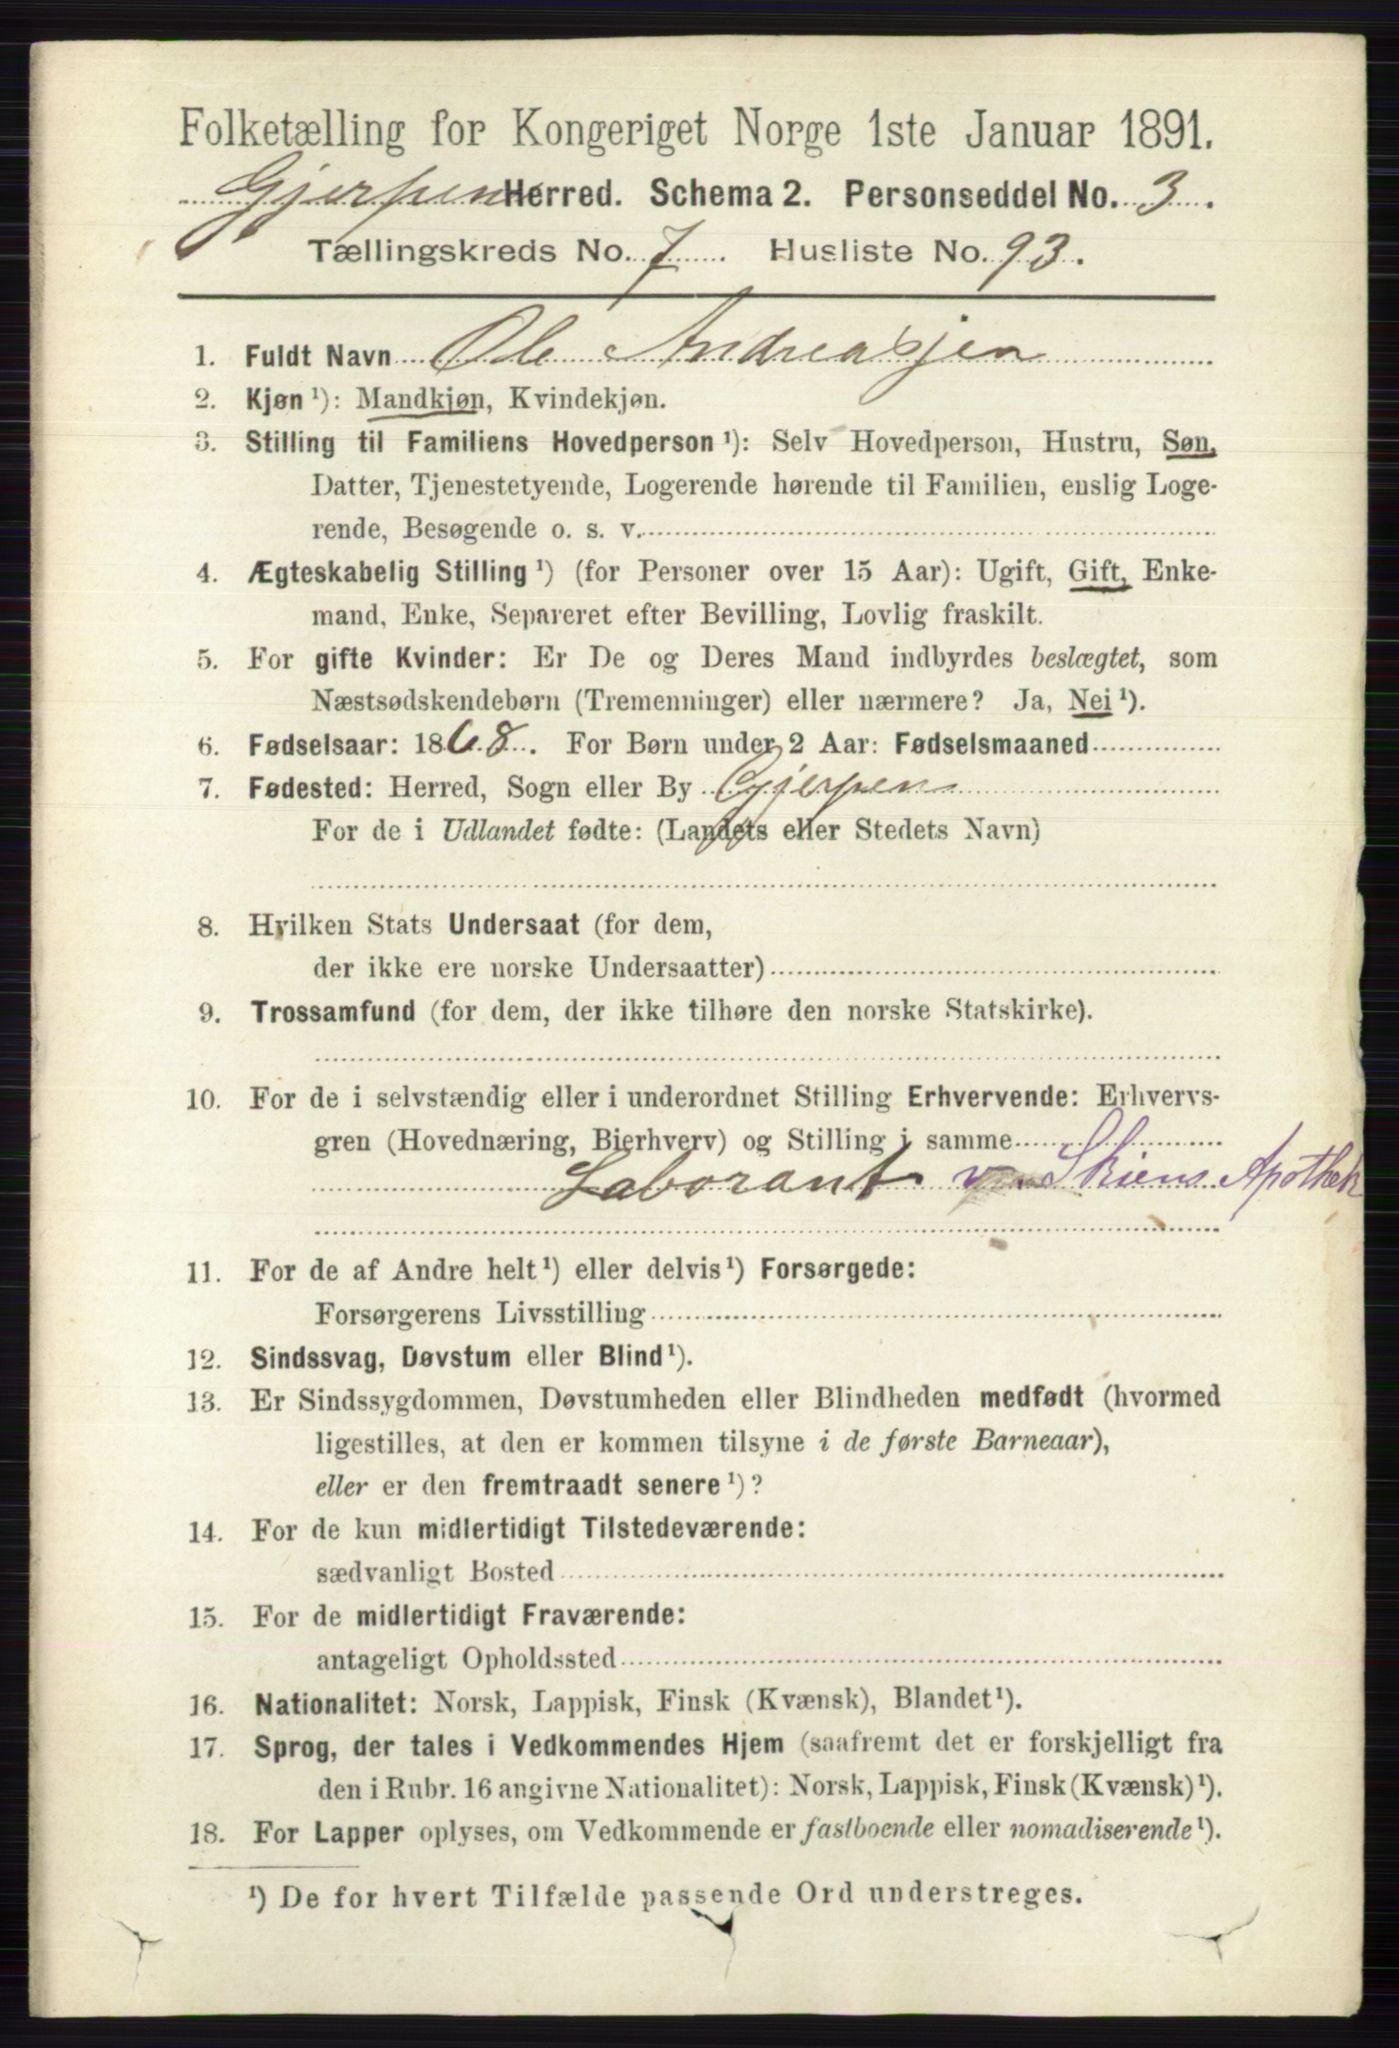 Folketælling for Kongeriget Norge 1ste Januar 1891.
Gjerpen Herred. Schema 2. Personseddel No. 3.
Tællingskreds No. 7 Husliste No. 93.
1. Fuldt Navn Ole Andreasjen
2. Kjøn ¹): Mandkjøn, Kvindekjøn.
3. Stilling til Familiens Hovedperson ¹): Selv Hovedperson, Hustru, Søn,
Datter, Tjenestetyende, Logerende hørende til Familien, enslig Loge-
rende, Besøgende o. s. v.
4. Ægteskabelig Stilling ¹) (for Personer over 15 Aar): Ugift, Gift, Enke-
mand, Enke, Separeret efter Bevilling, Lovlig fraskilt.
5. For gifte Kvinder: Er De og Deres Mand indbyrdes beslægtet, som
Næstsødskendebørn (Tremenninger) eller nærmere? Ja, Nei ¹).
6. Fødselsaar: 1868. For Børn under 2 Aar: Fødselsmaaned
7. Fødested: Herred, Sogn eller By Gjerpen
For de i Udlandet fødte: (Landets eller Stedets Navn)
8. Hvilken Stats Undersaat (for dem,
der ikke ere norske Undersaatter)
9. Trossamfund (for dem, der ikke tilhøre den norske Statskirke).
10. For de i selvstændig eller i underordnet Stilling Erhvervende: Erhvervs-
gren (Hovednæring, Bierhverv) og Stilling i samme
Laborant v. Skiens Apothek
11. For de af Andre helt ¹) eller delvis ¹) Forsørgede:
Forsørgerens Livsstilling
12. Sindssvag, Døvstum eller Blind ¹).
13. Er Sindssygdommen, Døvstumheden eller Blindheden medfødt (hvormed
ligestilles, at den er kommen tilsyne i de første Barneaar),
eller er den fremtraadt senere ¹)?
14. For de kun midlertidigt Tilstedeværende:
sædvanligt Bosted
15. For de midlertidigt Fraværende:
antageligt Opholdssted
16. Nationalitet: Norsk, Lappisk, Finsk (Kvænsk), Blandet ¹).
17. Sprog, der tales i Vedkommendes Hjem (saafremt det er forskjelligt fra
den i Rubr. 16 angivne Nationalitet): Norsk, Lappisk, Finsk (Kvænsk) ¹).
18. For Lapper oplyses, om Vedkommende er fastboende eller nomadiserende ¹).
¹) De for hvert Tilfælde passende Ord understreges.